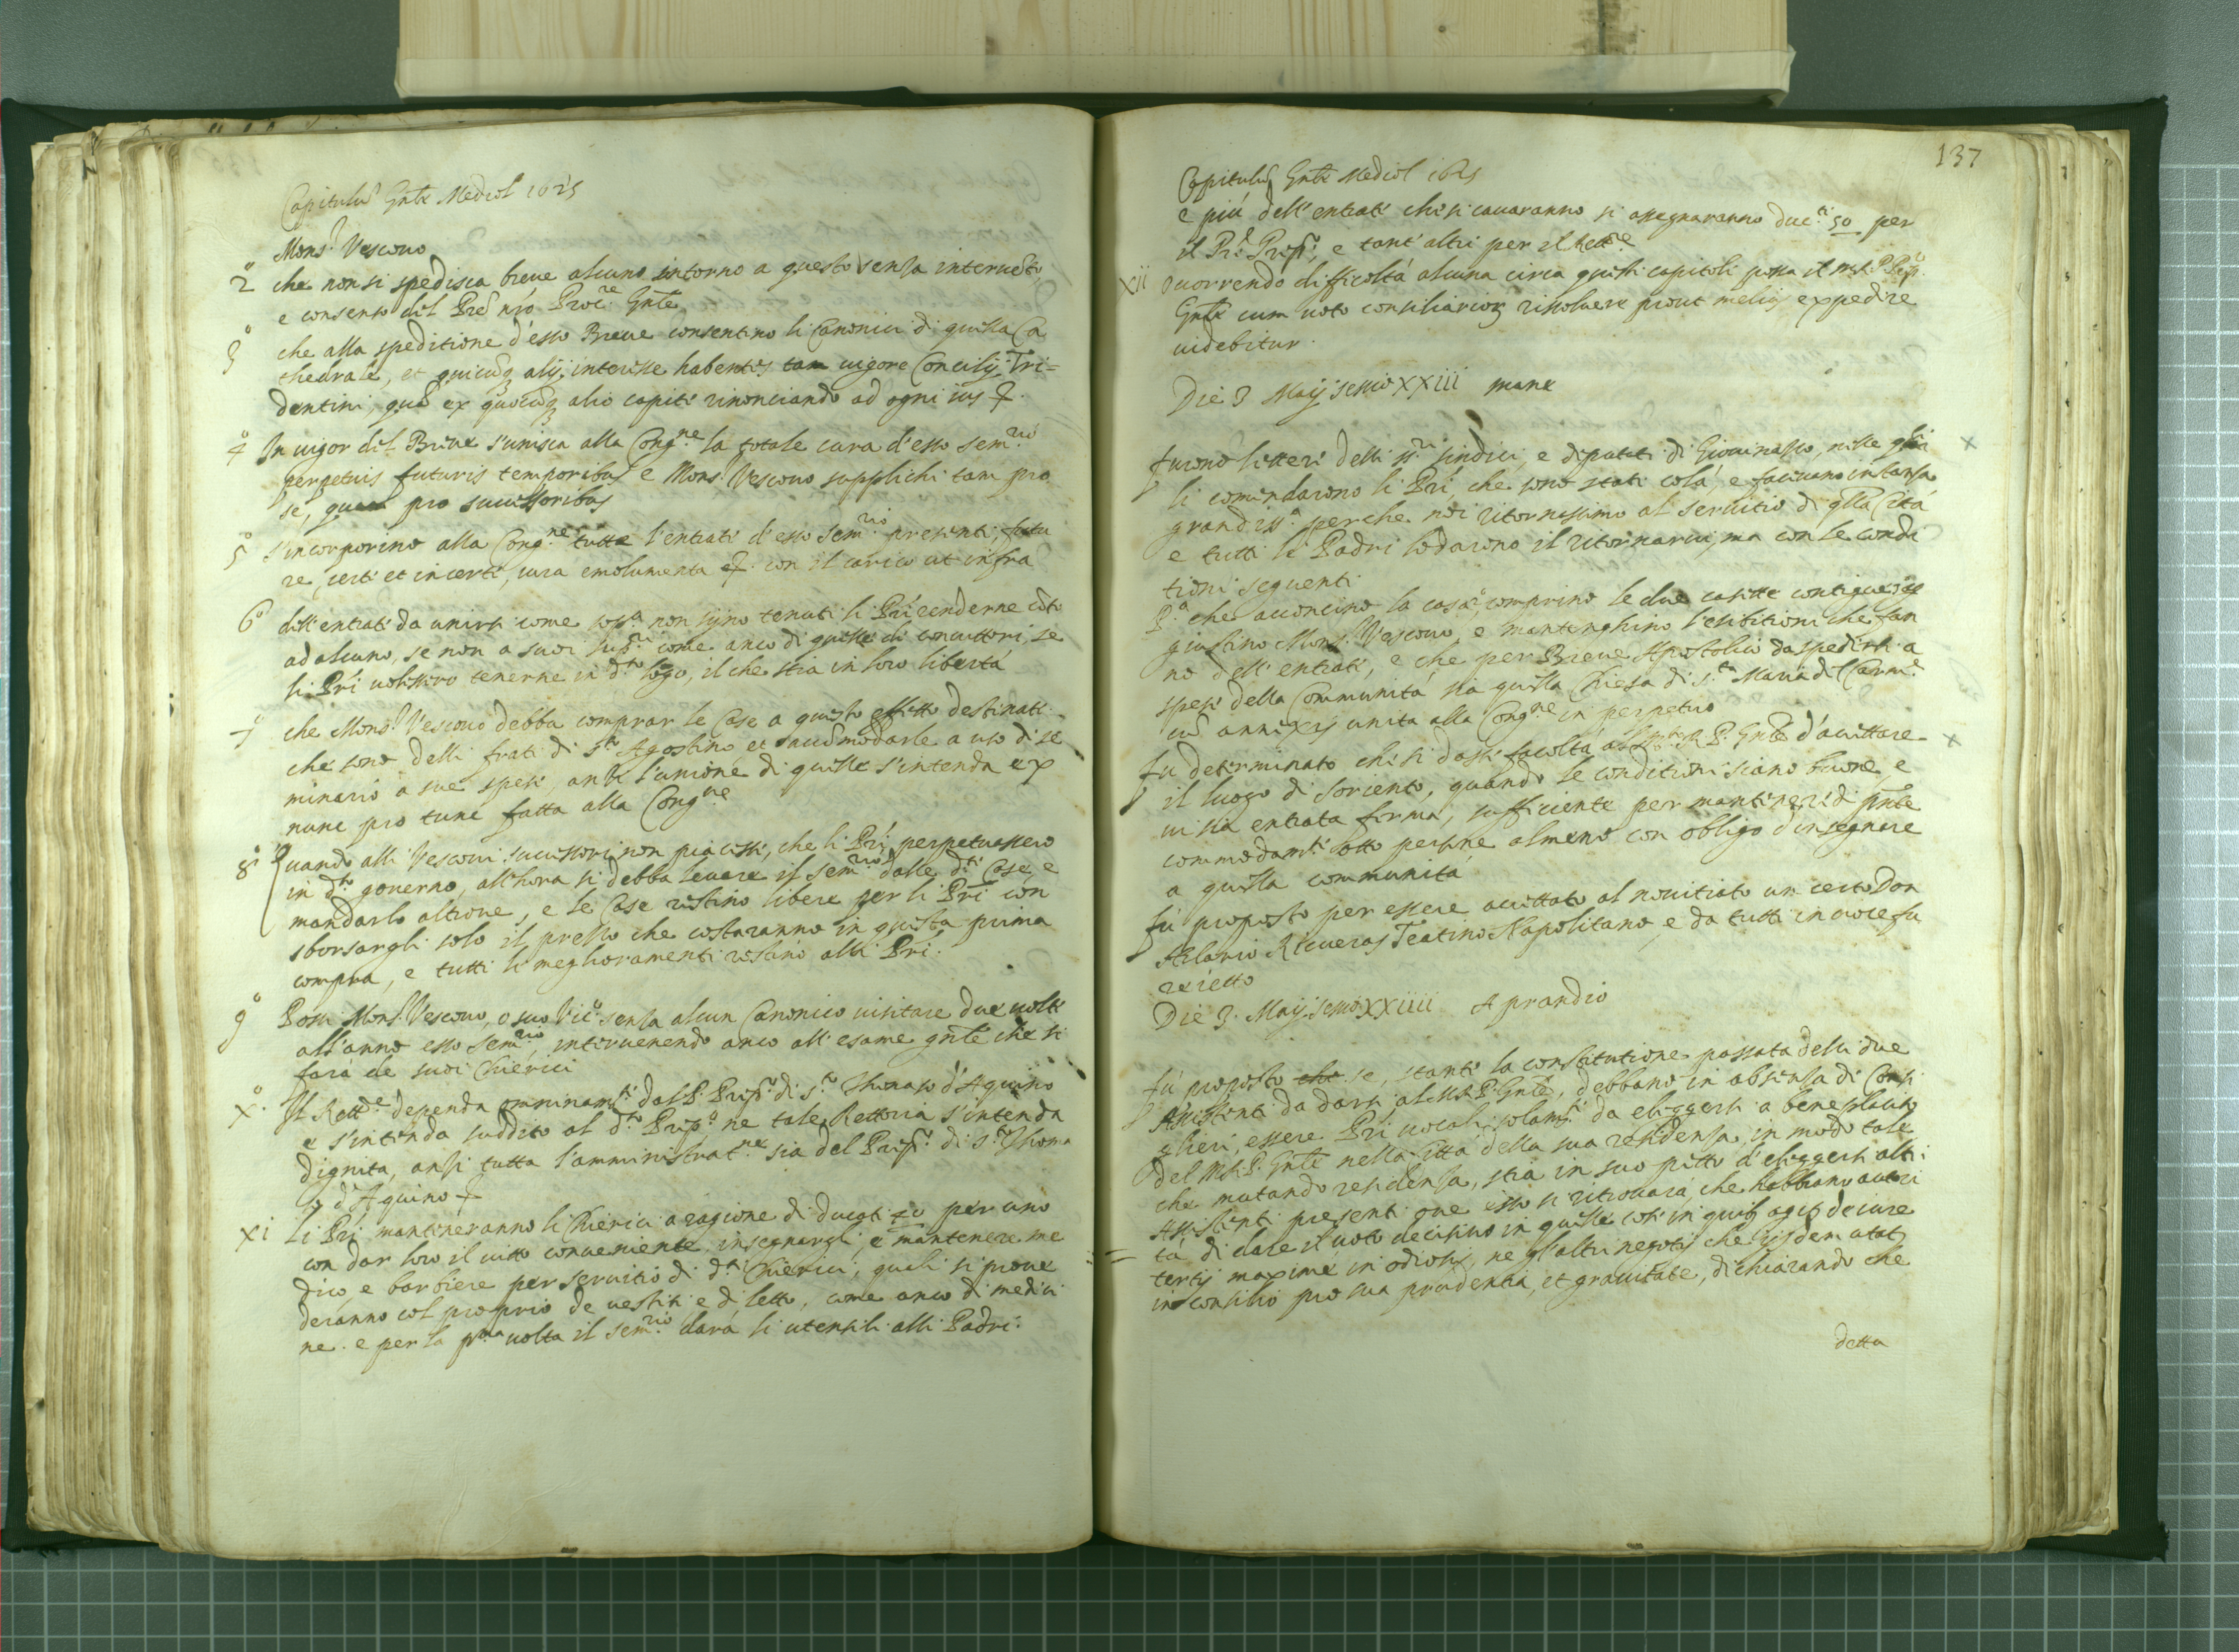 Capitulũ Gñle Mediol 1625
Mons.r Vescovo
2º che non si spedisca breve alcuno intorno a questo senza interuẽto,
e consenso del Prẽ nr̃o Proc.re Gñle
3º che alla speditione d'esso Breve consentino li Canonici di questa Ca
thedrale, et quicũq alij interesse habentes tam vigore Concilij Tri=
dentini, quã ex quocũq alio capite rinonciando ad ogni ius &.
4º In vigor del Breve s'unisca alla Cong.ne la totale cura d'esso sem.rio
perpetuis futuris temporibus e Mons.r Vescovo supplichi tam pro
se, quam pro successoribus
5º s'incorporino alla Cong.ne tutte l'entrate d'esso sem.rio presenti, futu
re, certe et incerte, iura emolumenta &. con il carico ut infra
6º dell'entrate da unirsi come sop.ra non sijno tenuti li Pri renderne cõto
ad alcuno, se non a suoi sup.ri come anco di quelle di convittori, se
li Pri volessero tenerne in d.to logo, il che stia in loro libertà
7º che Mons.r Vescovo debba comprar le Case a questo effetto destinate
che sono delli frati di S.to Agostino, et accõmodarle a uso di se
minario a sue spese, anzi l'unione di quelle s'intenda ex
nunc pro tunc fatta alla Cong.ne
8º Quando alli Vescovi successori non piacesse, che li Pri perpetuassero
in d.to governo, all'hora si debba levare il sem.rio dalle d.te Case, e
mandarlo altrove, e le Case restino libere per li Pri con
sborsargli solo il prezzo che costaranno in questa prima
compra, e tutti li meglioramenti restino alli Pri.
9º Possa Mons.r Vescovo, o suo Vic.o senza alcun Canonico visitare due volte
all'anno esso sem.rio, intervenendo anco all'esame gñle che si
farà de suoi Chierici
Xº. Il Rett.re dependa omninam.te dal P. Prep.o di S.to Thomaso d'Aquino
e s'intenda suddito al d.to Prep.o ne tale Rettoria s'intenda
dignità, anzi tutta l'amministrat.ne sia del Prep.o di S.to Thoma
so d'Aquino &
XI Li Pri manteneranno li Chierici a ragione di ducati 40 per uno
con dar loro il vitto conveniente, insegnargli, e mantenere me
dico, e barbiere per servitio di d.ti Chierici, quali si prove
deranno col proprio de vestiti e di letto, come anco di medici
ne. e per la p.ma volta il sem.rio darà li utensili alli Padri.
137
Capitulũ Gñle Mediol 1625
e più dell'entrate che si cavaranno si assegnaranno duc.ti 50 per
il Pr̃e Prep.to, e tant'altri per il Rett.re
XII occorrendo difficoltà alcuna circa questi capitoli possa il M.R.P. Prep.o
Gñle cum voto consiliarior risolvere prout melius expedire
videbitur.
Die 3 Maij sessio XXIII mane
furono lettere delli ss.ri sindici, e deputati di Giovinazzo, nelle quali
li comendarono li Pri, che sono stati colà, e facevano instanza
grandiss.a perche noi ritornassimo al servitio di q̃lla Città
e tutti li Padri lodarono il ritornarvi, ma con le condi
tioni seguenti
P.a che acconcino la casa, comprino le due casette contigue
giustino Mons.r Vescovo, e mantenghino l'esibitioni che fan
no dell'entrate, e che per Breve Apostolico da spedirsi a
spese della Communità sia quella Chiesa di S.ta Maria del Carm.e
cũ annexis unita alla Cong.ne in perpetuo
fu determinato che si dasse facoltà al M.R.P. Gñle d'accettare
il luogo di Sorient.o, quando le conditioni siano buone, e
vi sia entrata ferma, sufficiente per mantener di p̃nte
commodam.te otto persone almeno con obligo d'insegnare
a quella communità
fù proposto per essere accettato al novitiato un certo Don
Ilario Ricveras Teatino Napolitano, e da tutti in voce fu
reietto
Die 3. Maij sessio XXIIII A prandio
fù proposto che se, stante la constitutione passata delli due
Assistenti da darsi al M.R.P. Gñle, debbano in absenza di Consi
glieri, essere Pri vocali solam.te da eleggersi a beneplacito
del M.R.P. Gñle nella Città della sua residenza, in modo tale
che mutando residenza, stia in suo petto d'eleggersi altri
Assistenti presenti ove esso si ritrovarà, che habbiano autori
tà di dare il voto decisivo in quelle cose in quib. agit. de iure
tertij maxime in odiosis, ne gl'altri negotij che eisdem utat.
in consilio pro sua prudentia, et gravitate, dichiarando che
detta